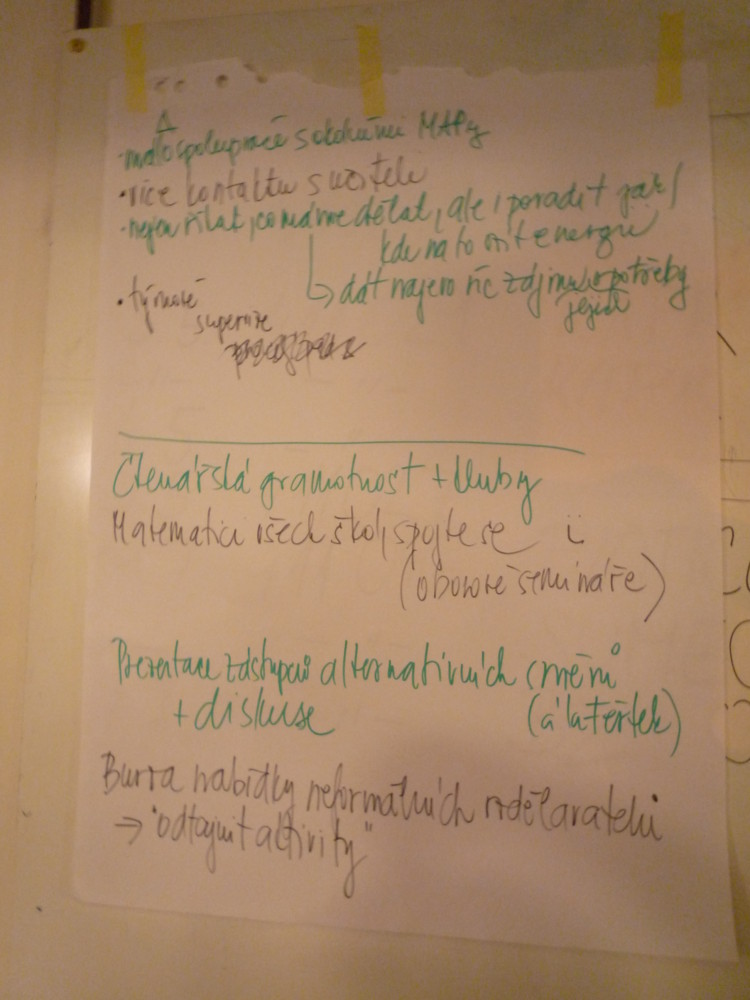 • málo spolupráce s okolními MAPy
• více kontaktu s učiteli
• nejen říkat, co máme dělat, ale i poradit jak/
kde na to vzít energii
↳ dát najevo víc zájmu o potřeby
jejich
• týmové
supervize
Čtenářská gramotnost + kluby
Matematici všech škol, spojte se
(oborové semináře)
Prezentace zástupců alternativních směrů
+ diskuse (a la těřtek)
Burza nabídky neformálních vzdělavatelů
→ "odtajnit aktivity"